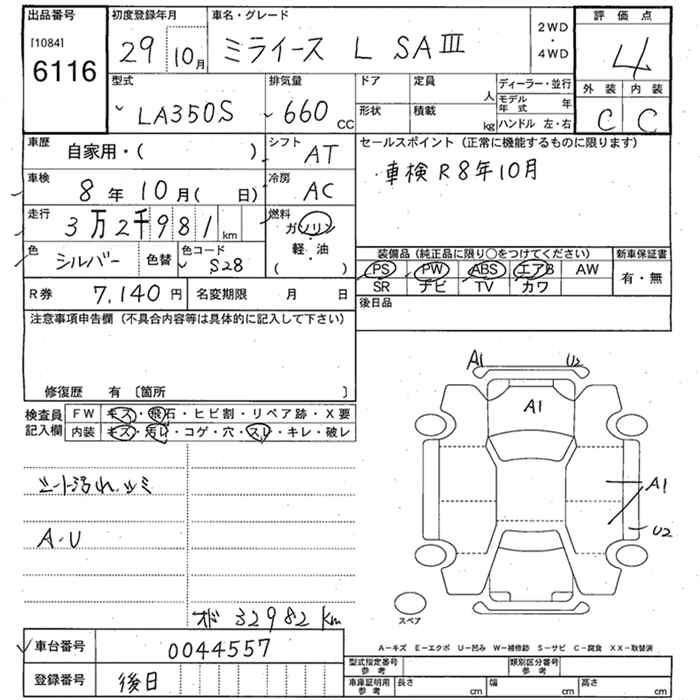 出品番号
[1084]
6116
初度登録年月
29 10月
車名・グレード
ミライース L SAⅢ
2WD
・
4WD
評価点
4
外装 内装
C C
型式
LA350S
排気量
660 CC
ドア 定員 人
形状 積載 kg
ディーラー・並行
モデル年式 年
ハンドル 左・右
車歴
自家用・( )
シフト
AT
セールスポイント（正常に機能するものに限ります）
車検R8年10月
車検
8年10月( 日)
冷房
AC
走行
3万2千981km
燃料
ガソリン
軽・油
( )
色
シルバー 色替
色コード
S28
装備品（純正品に限り○をつけてください） 新車保証書
PS PW ABS エアB AW
SR ナビ TV カワ
有・無
R券 7,140円 名変期限 月 日
後日品
注意事項申告欄（不具合内容等は具体的に記入して下さい）
修復歴 有〔箇所 〕
検査員記入欄
FW キズ・飛石・ヒビ割・リペア跡・X要
内装 キズ・汚レ・コゲ・穴・スレ・キレ・破レ
シート汚れ、シミ
A・U
オド 32982km
A1 U2
A1
A1
U2
スペア
車台番号 0044557
登録番号 後日
A－キズ E－エクボ U－凹み W－補修跡 S－サビ C－腐食 XX－取替済
型式指定番号参考 類別区分番号参考
車庫証明用参考 長さ cm 幅 cm 高さ cm